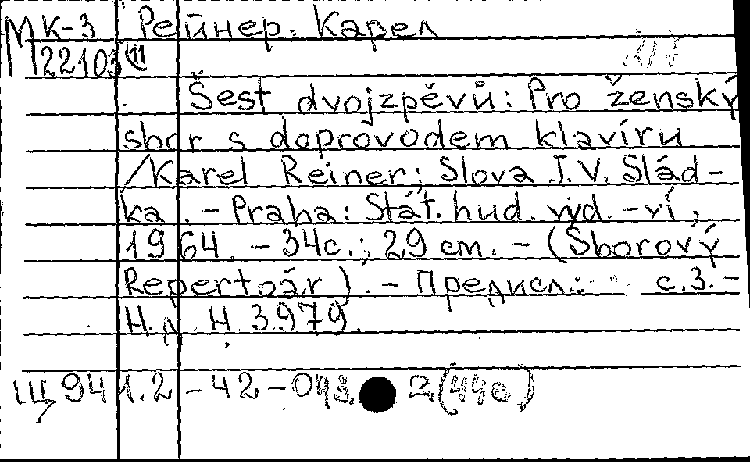 МК-3 Рейнер. Карел
122103
Šest dvojzpěvů: Pro ženský
sbor s doprovodem klavíru
/Karel Reiner; Slova J.V. Slád-
ka. - Praha: Stát. hud. vyd. -ví,
1964. - 34с.; 29 cm. - (Sborový
Repertoár). - Предисл.: с.3. -
Н.д. Н. 3979.
Щ 941.2 - 42 - 043 2(440)